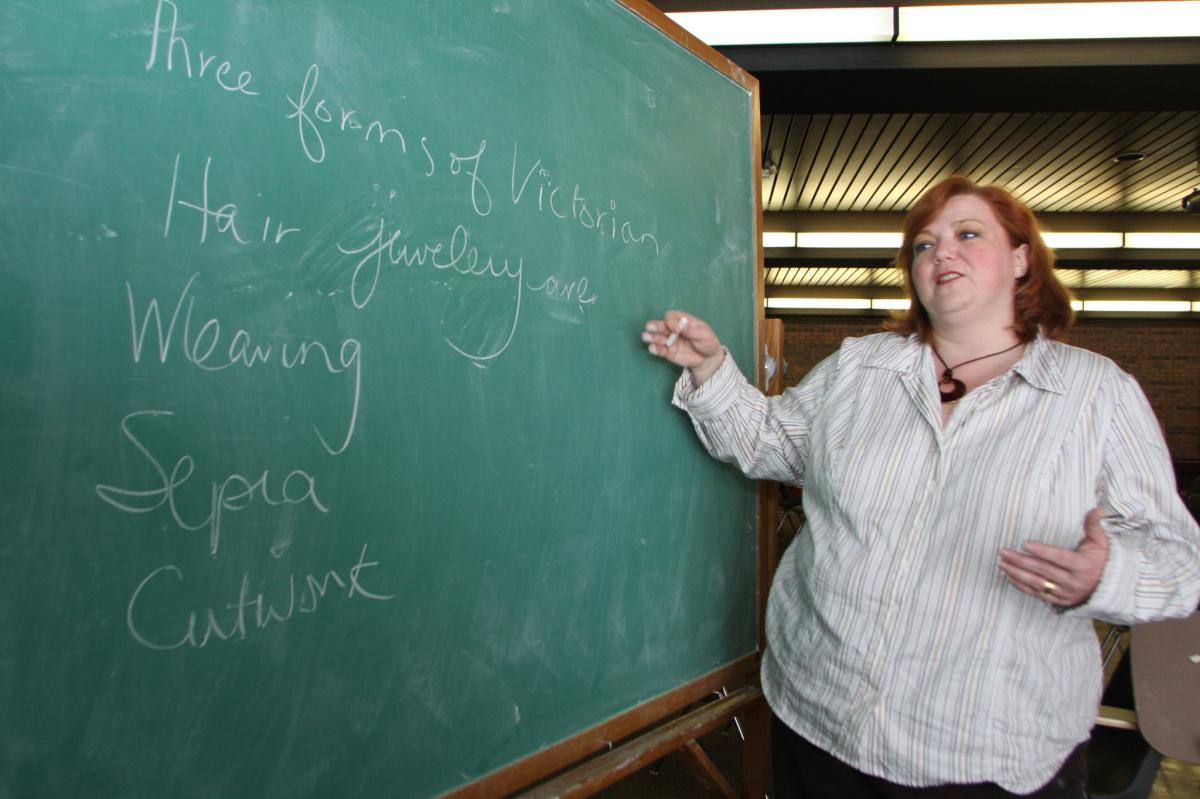 Three forms of Victorian
Hair jewelery are
Weaving
Sepia
Cutwork